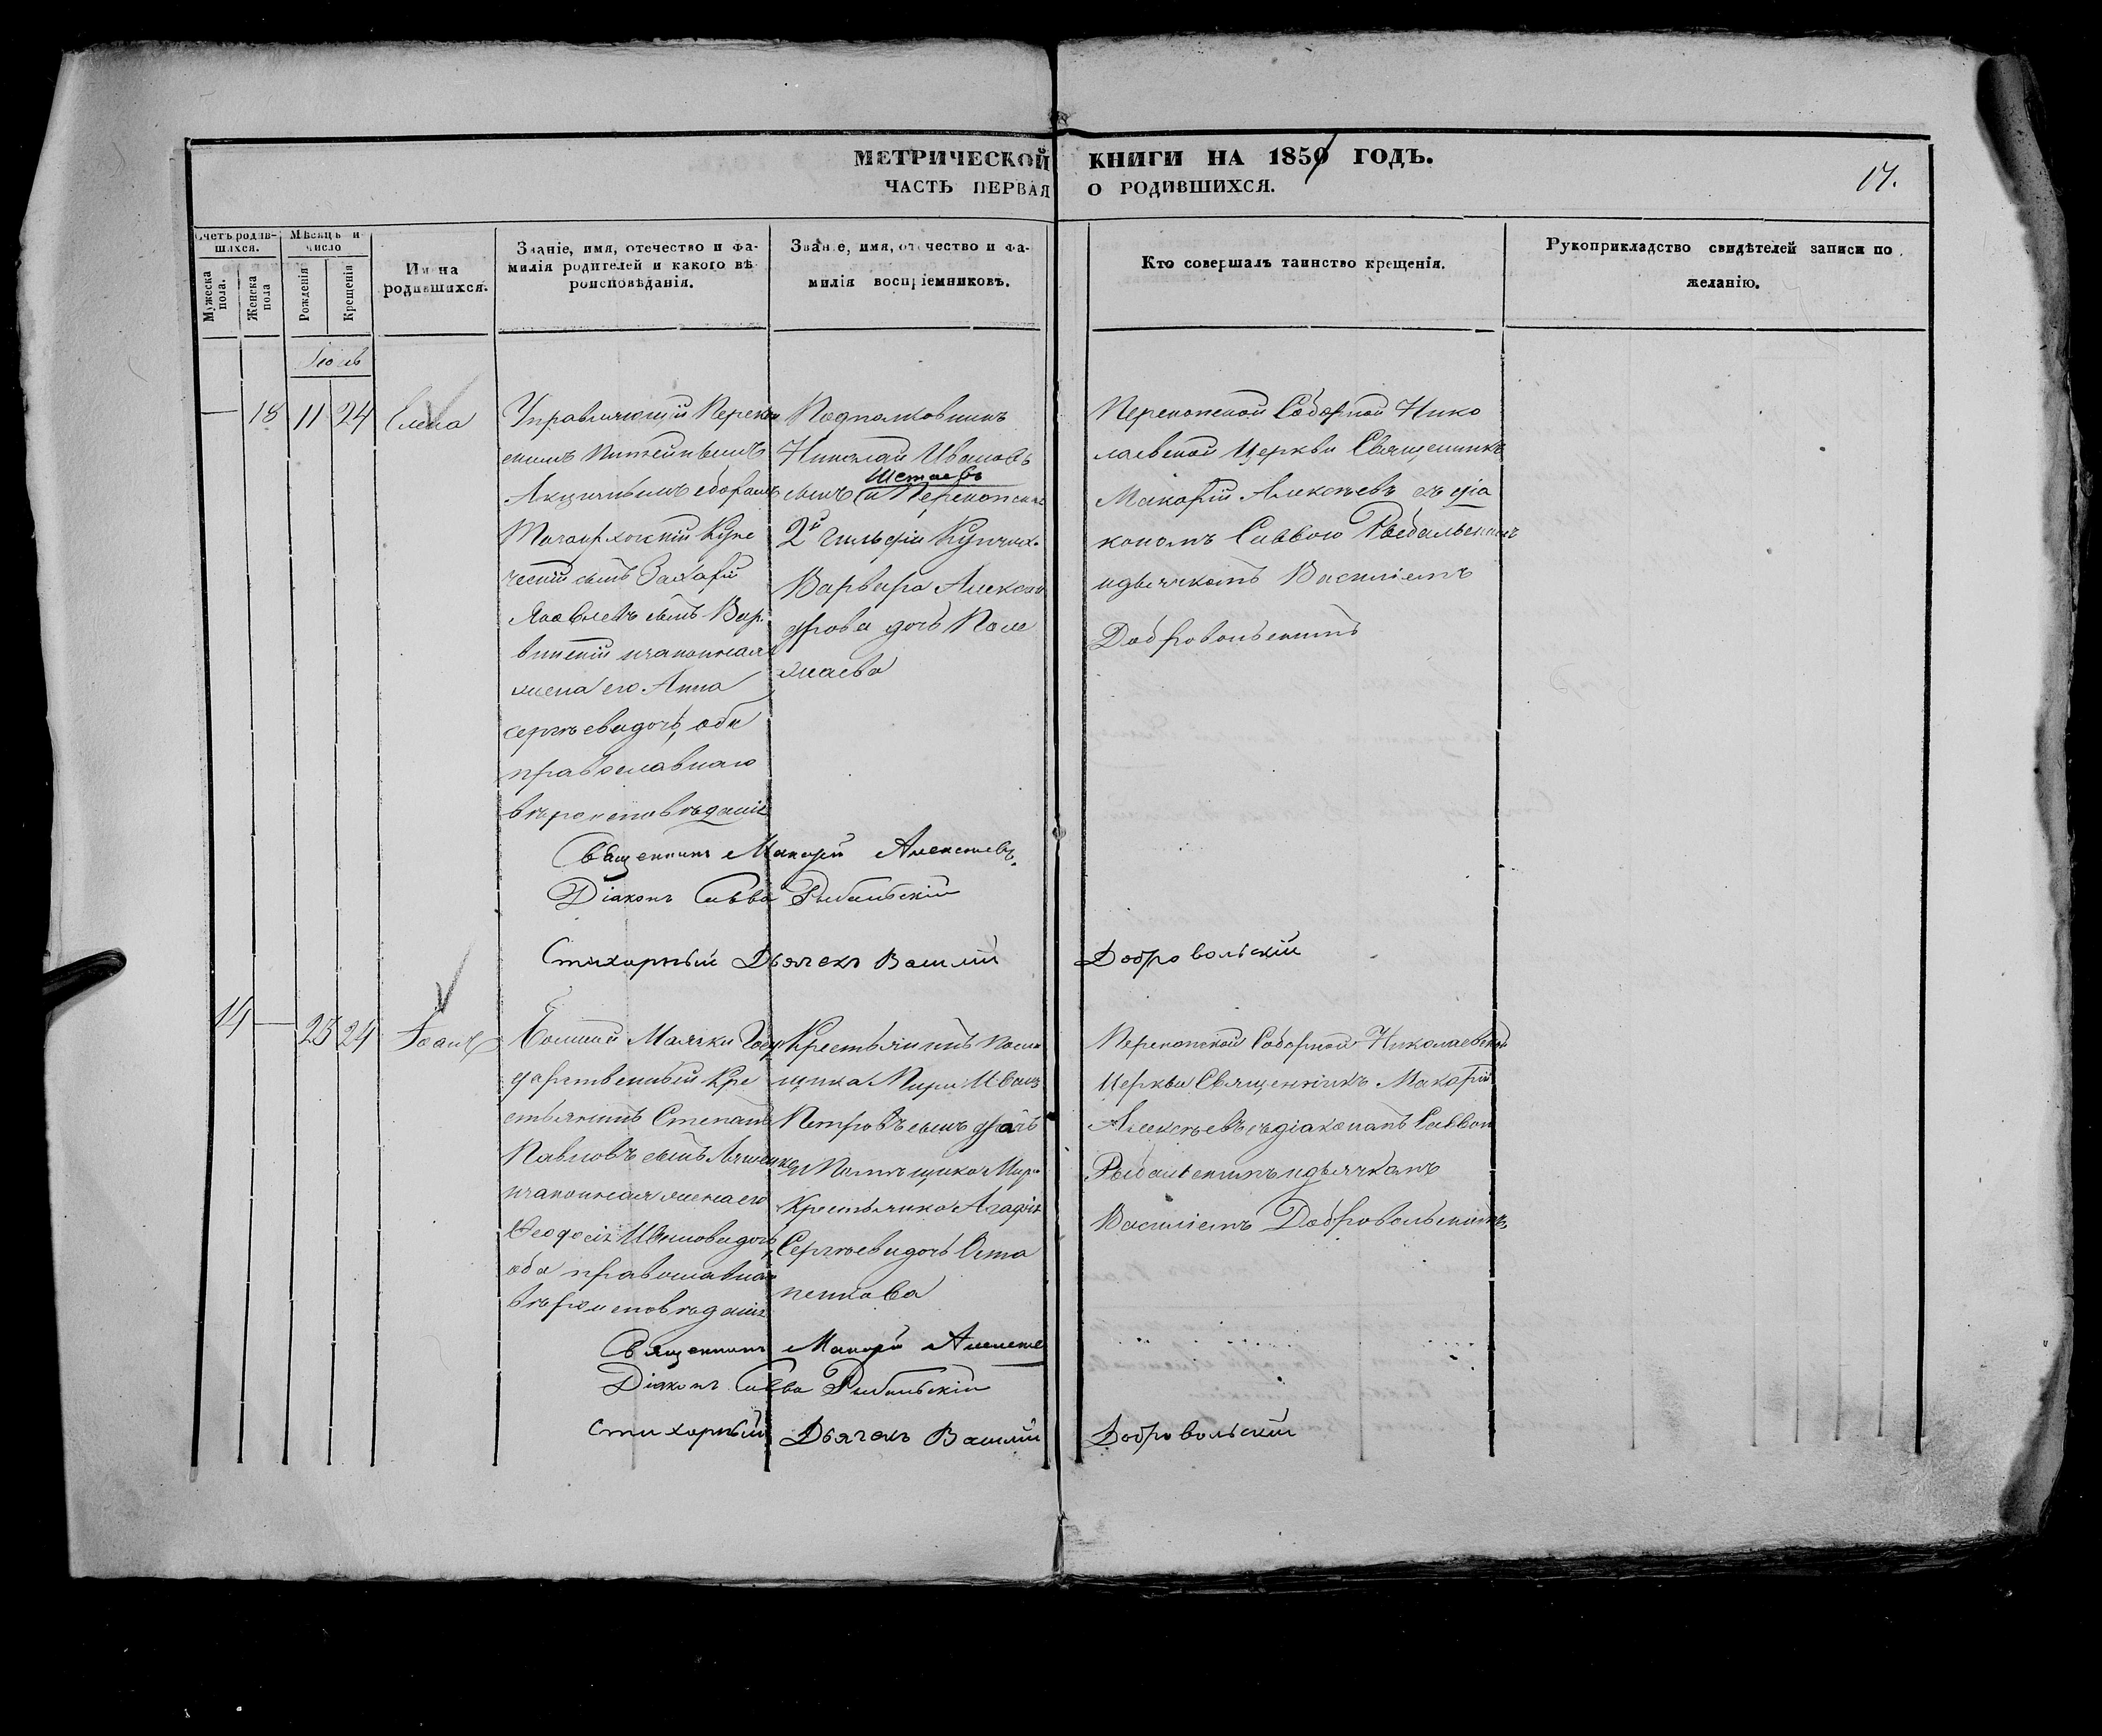 МЕТРИЧЕСКОЙ КНИГИ НА 1850 ГОДЪ.
ЧАСТЬ ПЕРВАЯ О РОДИВШИХСЯ.
17.
Счетъ родившихся.
Мужеска пола.
Женска пола
Мѣсяцъ и число
Рожденія
Крещенія
Имена родившихся.
Званіе, имя, отечество и фамилія родителей и какого вѣроисповѣданія.
Званіе, имя, отечество и фамилія воспріемниковъ.
Кто совершалъ таинство крещенія.
Рукоприкладство свидѣтелей записи по желанію.
— 18 11 24 Елена
Управляющій Переко
скимъ питейнымъ
Акцизнымъ сборамъ
купе
ческій сынъ Захарій
Яковлевъ сынъ Вар
винскій изаконная
жена его Анна
Сергѣева дочь, оба
православнаго
вѣроисповѣданія
Подполковникъ
Николай Ивановъ
сынъ и Перекопская
2й гильдіи Купчиха
Варвара Алексан
дрова дочь
Перекопской Соборной Нико
лаевской Церкви Священникъ
Макарій Алексѣевъ съ діа
кономъ Саввою Рыбальскимъ
идьячкомъ Василіемъ
Добровольскимъ
Священникъ Макарій Алексѣевъ
Діаконъ Савва Рыбальскій
Стихарный Дьячекъ Василій Добровольскій
14 — 23 24 Іоанъ
Маячки Госу
дарственный Кре
стьянинъ Степанъ
Павловъ сынъ
изаконная жена его
Ѳеодосія дочь
оба православна
вѣроисповѣданія
Крестьянинъ Поме
щика Иванъ
Петровъ сынъ
Помѣщика
Крестьянка Агафія
Сергѣева дочь Оста
пенкова
Перекопской Соборной Николаевской
Церкви Священникъ Макарій
Алексѣевъ съ діакономъ Саввою
Рыбальскимъ идьячкомъ
Василіемъ Добровольскимъ
Священникъ Макарій Алексѣе
Діаконъ Савва Рыбальскій
Стихарный Дьячекъ Василій Добровольскій